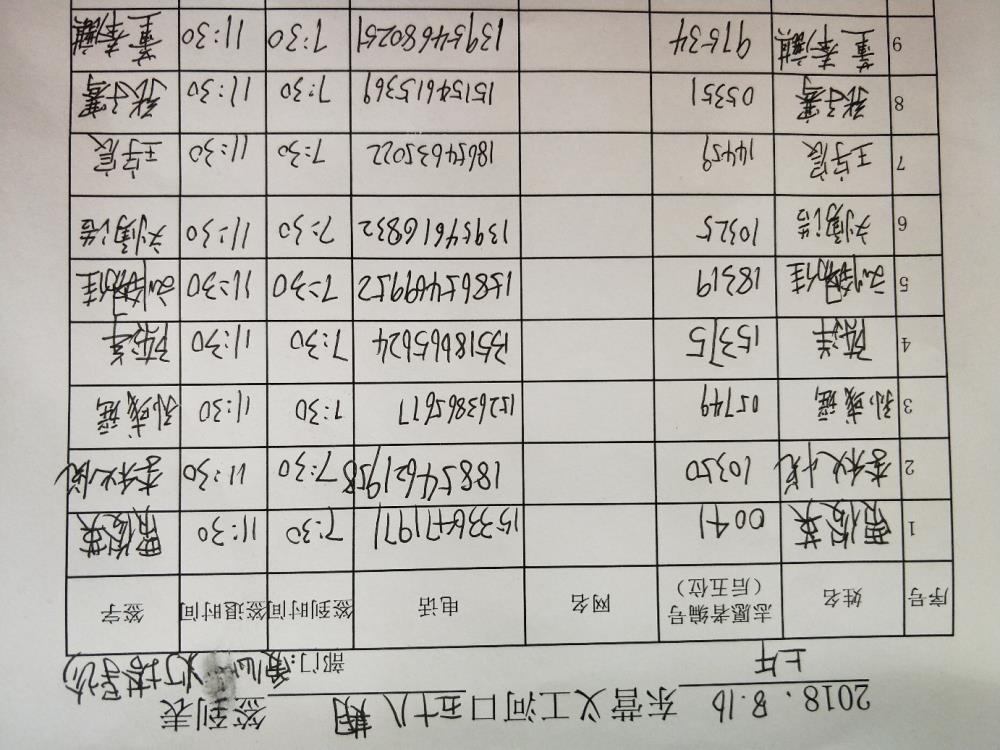 2018.8.16 东营义工河口五十八期 签到表
上午 部门:爱心灯塔
序号 姓名 志愿者编号(后五位) 网名 电话 签到时间 签退时间 签字
1 贾俊英 0041 15336471971 7:30 11:30 贾俊英
2 李秋悦 10350 18854621958 7:30 11:30 李秋悦
3 孙彧瑶 05749 15263865677 7:30 11:30 孙彧瑶
4 陈洋 15375 13518665624 7:30 11:30 陈洋
5 刘佳 18319 15865469952 7:30 11:30 刘佳
6 刘浩 10325 13954616832 7:30 11:30 刘浩
7 王宇宸 14459 18654635022 7:30 11:30 王宇宸
8 张子骞 05351 15154615369 7:30 11:30 张子骞
9 董麒 97534 13954680251 7:30 11:30 董麒